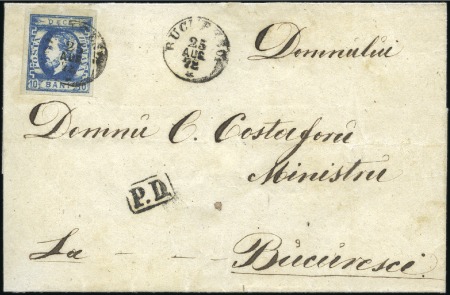 DECE
POSTA
10 BANI 10
BUCURESCI
25
AUG
72
Domnului
Domnu C. Costaforu
Ministru
P.D.
La
Bucuresci.